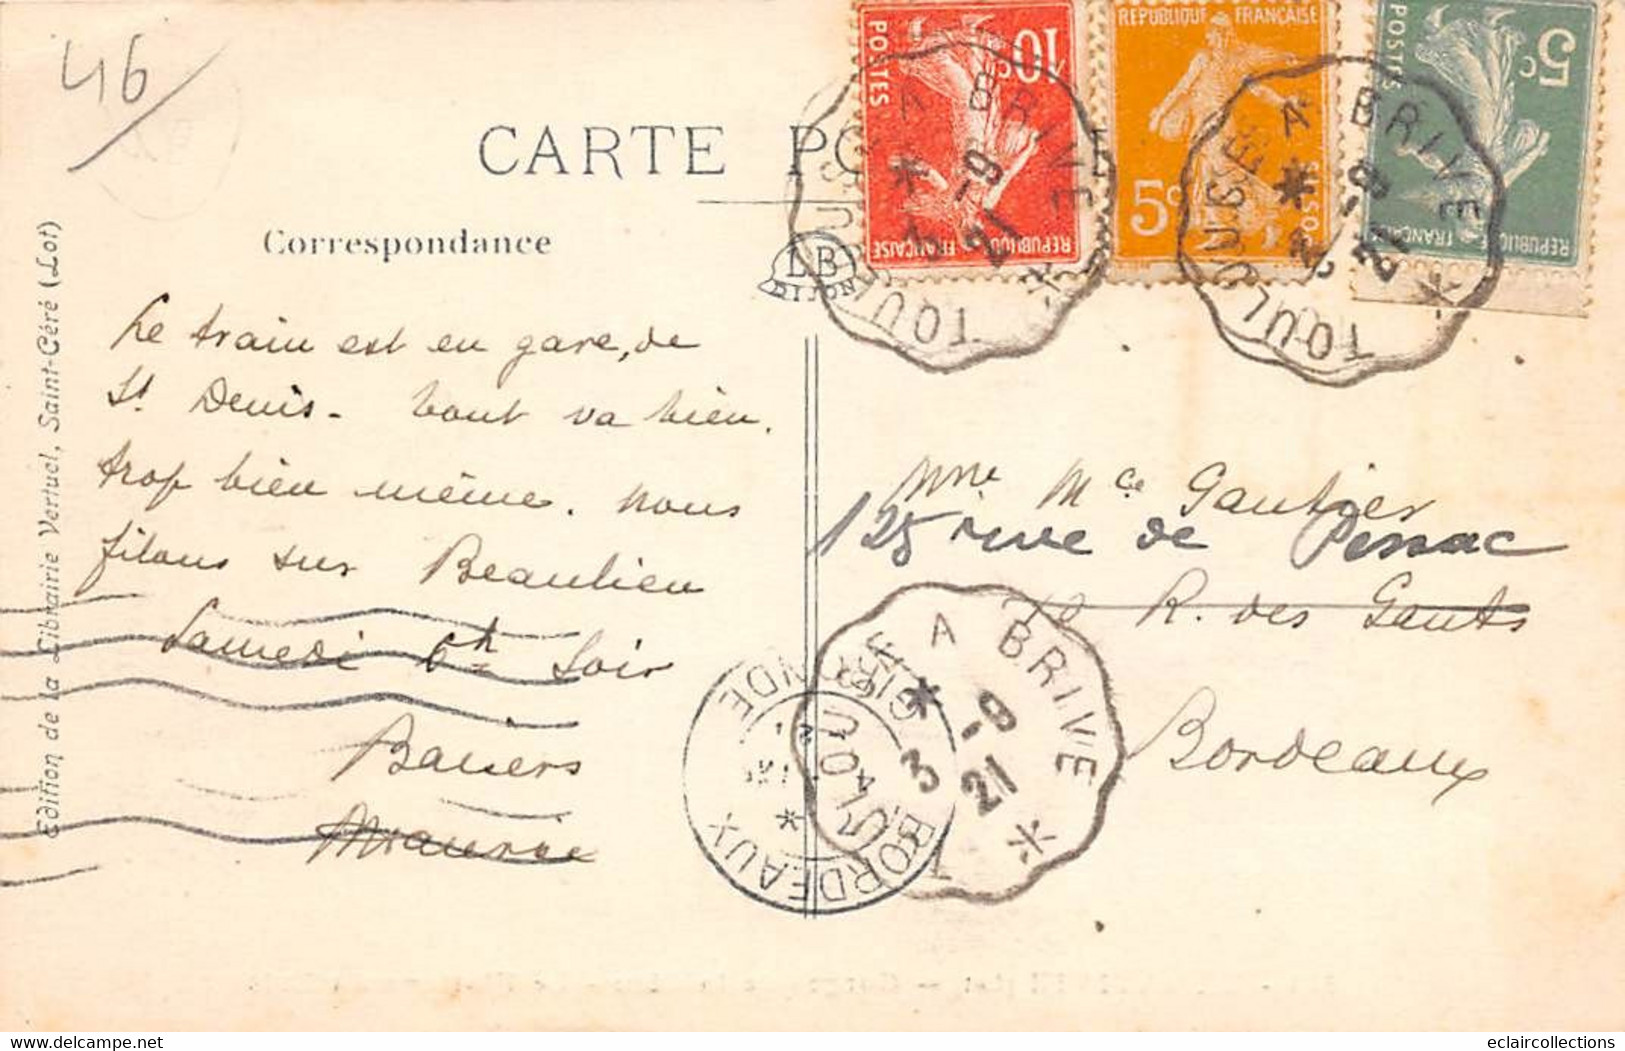 46
CARTE PO
Correspondance
LB
DIJON
10c
POSTES
REPUBLIQUE FRANÇAISE
REPUBLIQUE FRANÇAISE
5c
5c
POSTES
REPUBLIQUE FRANÇAISE
TOULOUSE A BRIVE
3 -9
21
TOULOUSE A BRIVE
-9
21
Edition de la Librairie Vertuel, Saint-Céré (Lot)
Le train est en gare, de
St Denis - tout va bien,
trop bien même. nous
filons sur Beaulieu
Samedi 6h Soir
Baisers
Maurice
Mme Mce Gautier
125 rue de Pessac
10 R. des Gants
Bordeaux
TOULOUSE A BRIVE
3 -9
21
BORDEAUX
GIRONDE
eclaircollections
delcampe.net